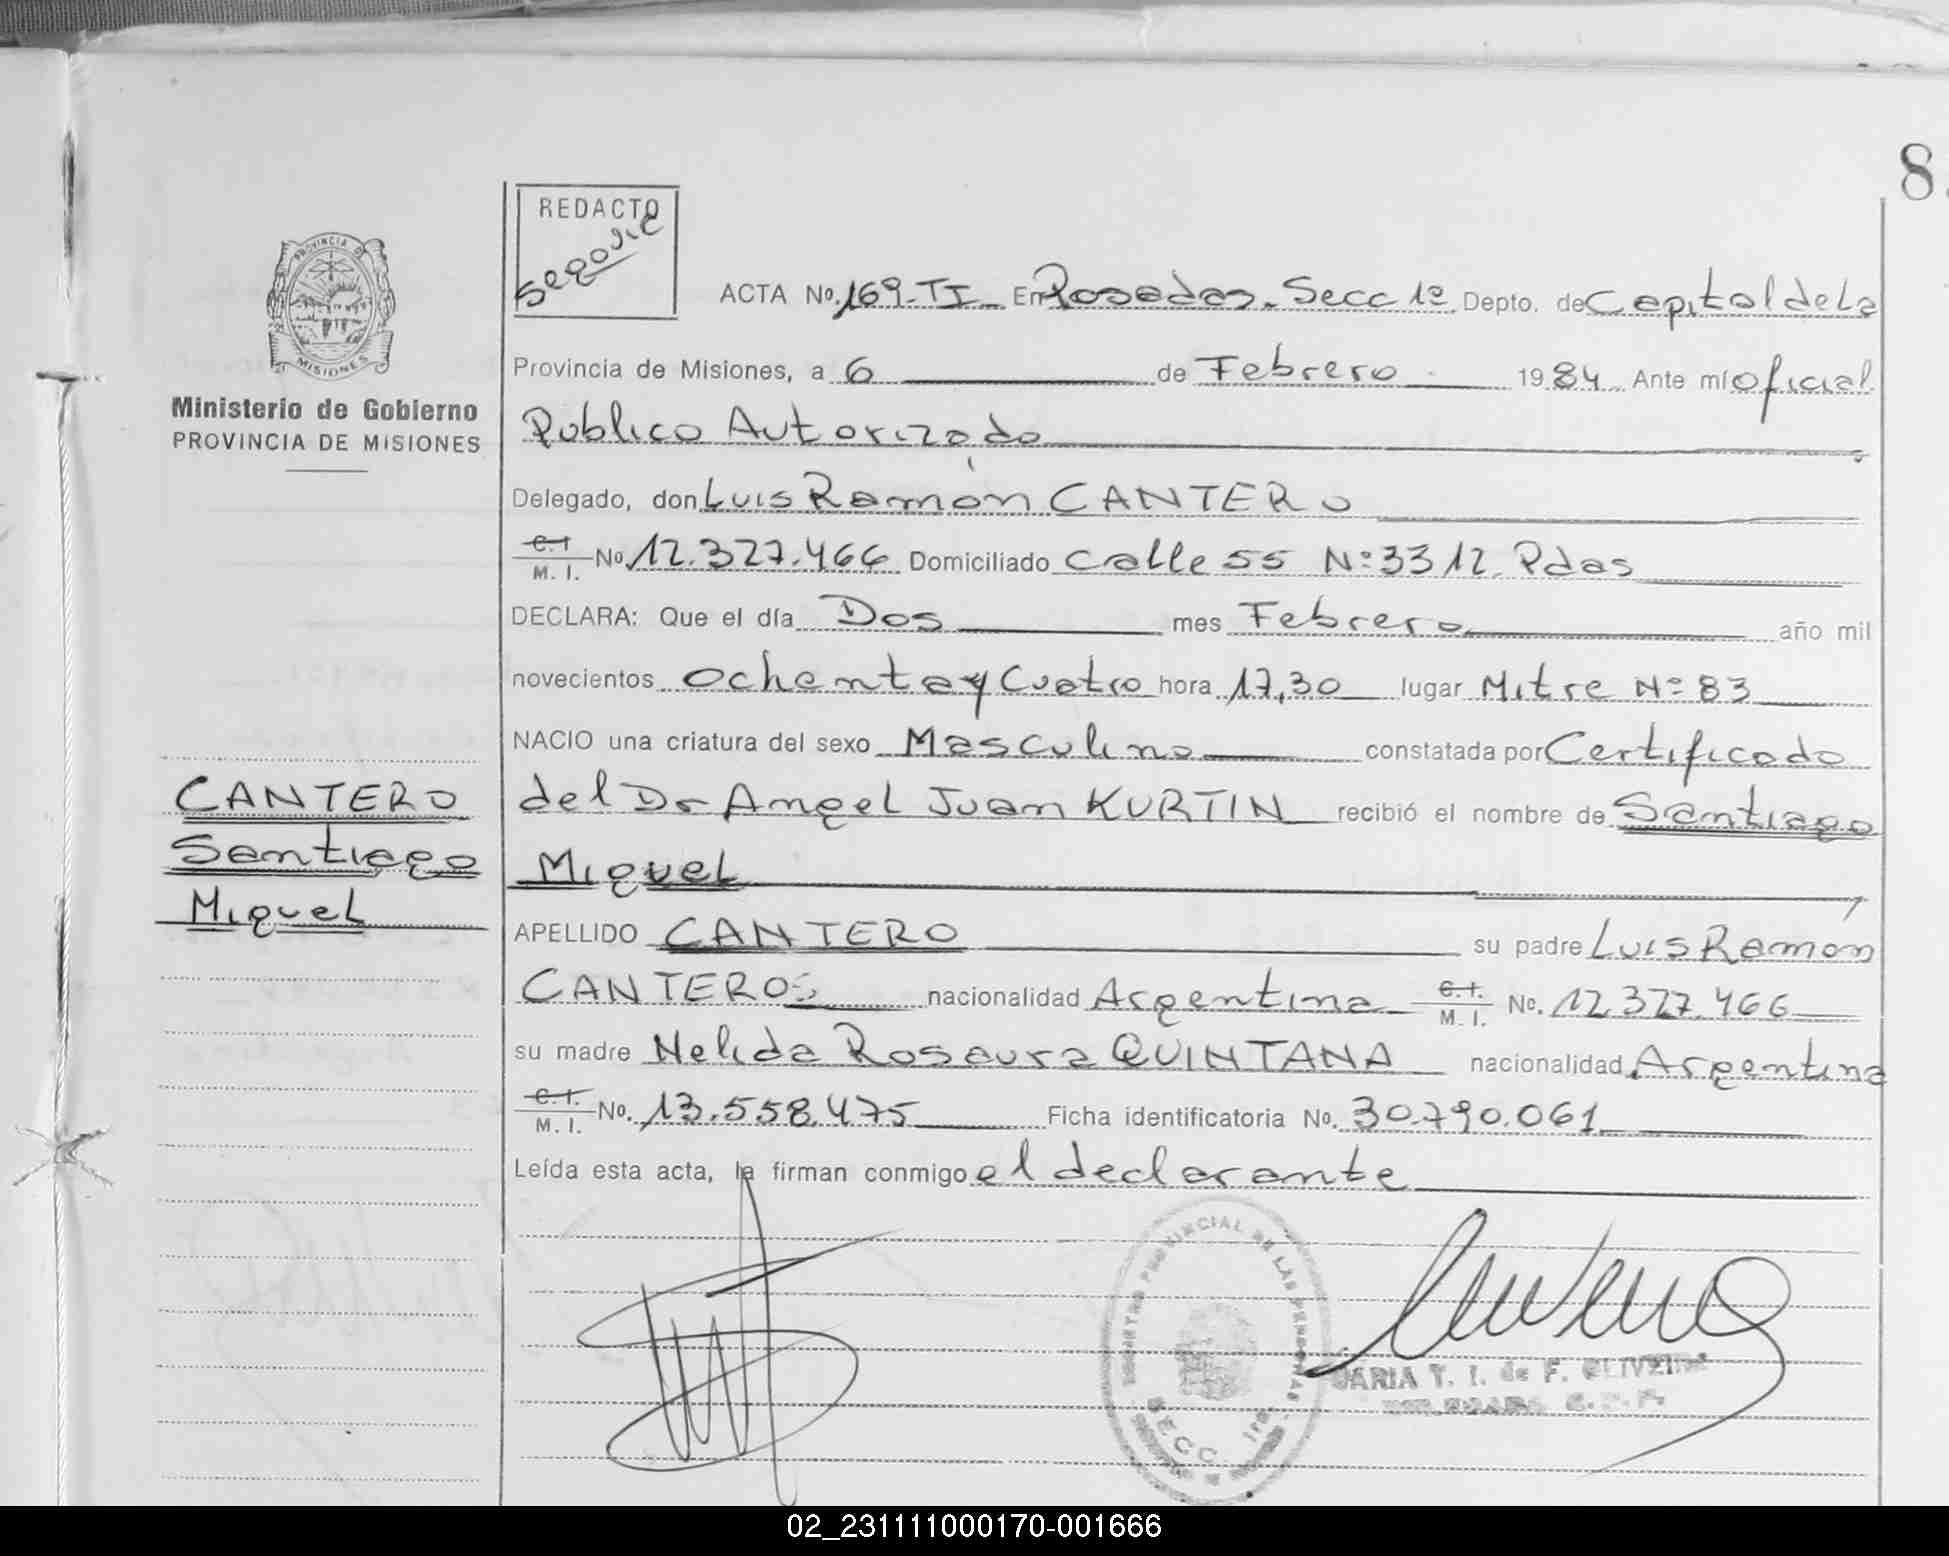 8
REDACTO
Segovic
PROVINCIA DE
MISIONES
Ministerio de Gobierno
PROVINCIA DE MISIONES
ACTA No. 169-TI En Posadas. Secc 1º Depto. de Capital de La
Provincia de Misiones, a 6 de Febrero 1984 Ante mí oficial
Publico Autorizado
Delegado, don Luis Ramón CANTERO
C.I M. I. No 12.327.466 Domiciliado Calle 55 Nº 3312. Pdas
DECLARA: Que el día Dos mes Febrero año mil
novecientos ochenta y Cuatro hora 17,30 lugar Mitre Nº 83
NACIO una criatura del sexo Masculino constatada por Certificado
del Dr Angel Juan KURTIN recibió el nombre de Santiago
Miguel
APELLIDO CANTERO su padre Luis Ramón
CANTEROS nacionalidad Argentina C.I. M. I. No. 12.327.466
su madre Nelida Rosaura QUINTANA nacionalidad Argentina
C.I. M. I. No. 13.558.475 Ficha identificatoria No. 30.790.061
Leída esta acta, la firman conmigo el declarante
CANTERO
Santiago
Miguel
REGISTRO PROVINCIAL DE LAS PERSONAS
SECC. 1ra.
MARIA T. I. de F. OLIVEIRA
02_231111000170-001666